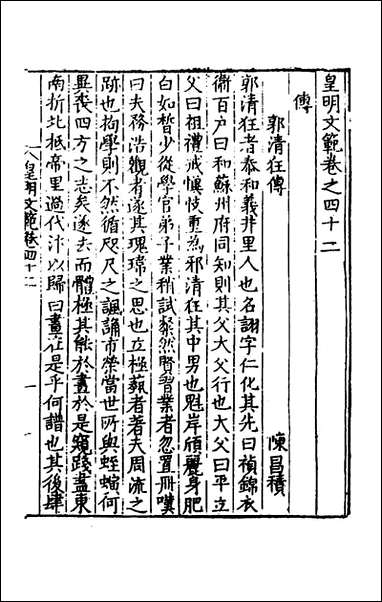 皇明文範卷之四十二
傳
郭清狂傳
陳昌積
郭清狂者泰和義井里人也名詡字仁化其先曰禎錦衣
衛百户曰和蘇州府同知則其父大父行也大父曰平立
父曰祖禮戒慎忮重為邪清狂其中男也魁岸頎麗身肥
白如晳少從學官弟子業稍試褎然賢習業者忽置冊嘆
曰夫務浩觀者遂其瑰瑋之思也立極藝者著夫周流之
跡也拘學則不然循咫尺之諷誦市榮當世所與蛭螾何
異喪四方之志矣遂去而體極其能於畫於是窺踐葢東
南折北抵帝里過代汴以歸曰畫在是乎何譜也其後肆
皇明文範卷四十二
一